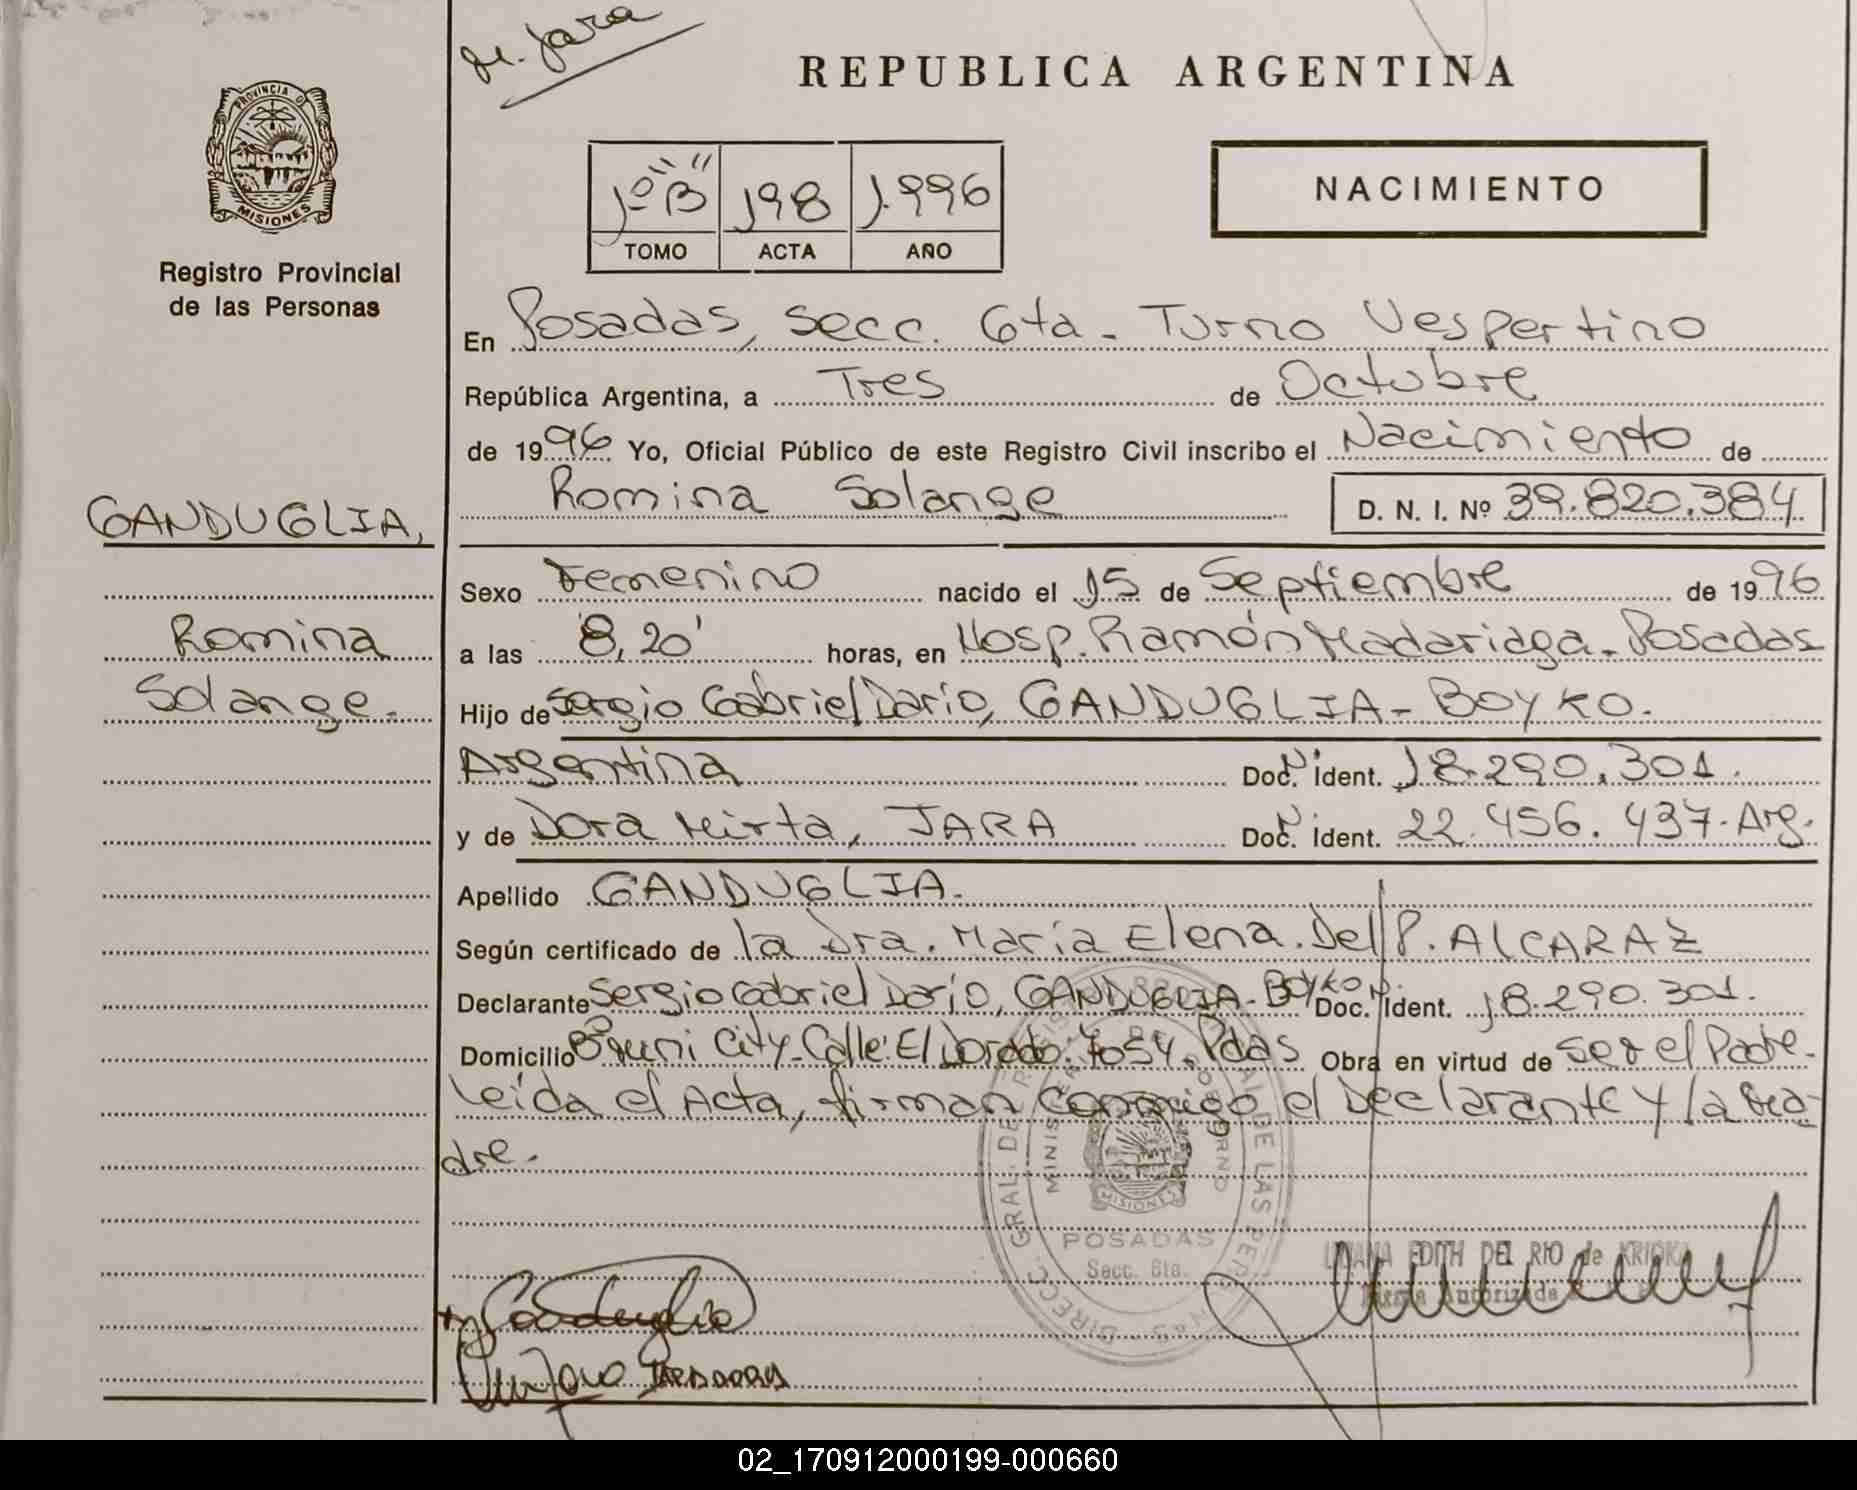 M. Jara
REPUBLICA ARGENTINA
PROVINCIA DE
MISIONES
Registro Provincial
de las Personas
1º "B" 198 1.996
TOMO ACTA AÑO
NACIMIENTO
En Posadas, Secc. 6ta - Turno Vespertino
República Argentina, a Tres de Octubre
de 1996 Yo, Oficial Público de este Registro Civil inscribo el Nacimiento de
Romina Solange D. N. I. Nº 39.820.384
GANDUGLIA,
Romina
Solange.
Sexo Femenino nacido el 15 de Septiembre de 1996
a las 8,20' horas, en Hosp. Ramón Madariaga - Posadas
Hijo de Sergio Gabriel Darío, GANDUGLIA - BOYKO.
Argentina Doc. N. Ident. 18.290.301.
y de Dora Mirta, JARA Doc. N. Ident. 22.456.437. Arg.
Apellido GANDUGLIA.
Según certificado de la Dra. María Elena. Del P. ALCARAZ
Declarante Sergio Gabriel Darío, GANDUGLIA - BOYKO Doc. N. Ident. 18.290.301.
Domicilio City - Calle: El Dorado. 7054. Pdas Obra en virtud de ser el Padre.
Leída el Acta, firman conmigo el Declarante y la Ma-
dre.
DIRECC. GRAL. DE REGISTRO PROVINCIAL DE LAS PERSONAS
MINISTERIO DE GOBIERNO
MISIONES
POSADAS
Secc. 6ta.
EDITH DEL RIO de
Autorizada
Ganduglia
JARA DORA
02_170912000199-000660